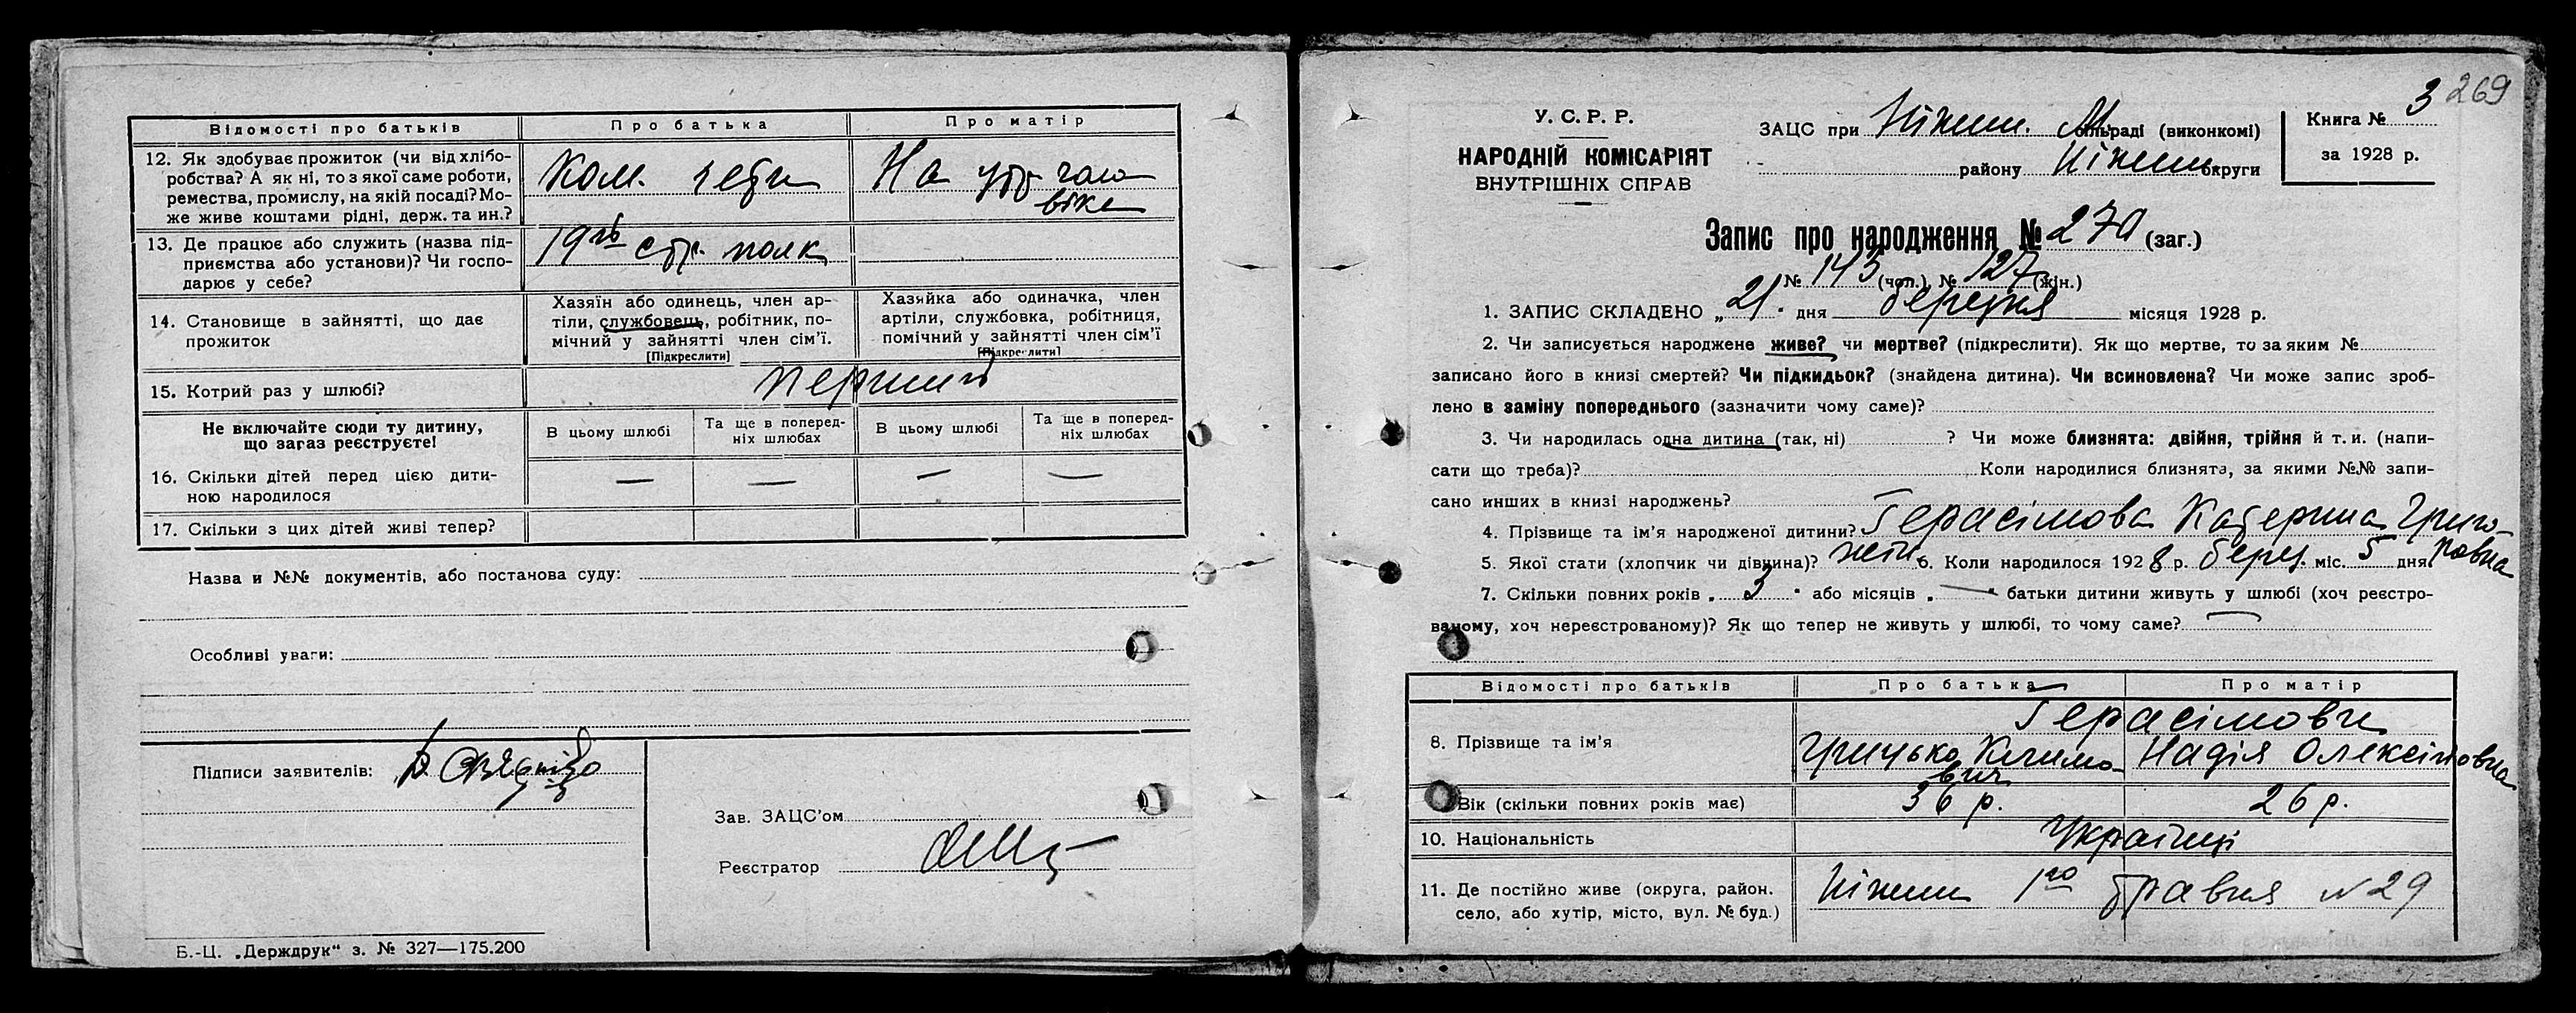 Відомості про батьків
Про батька
Про матір
12. Як здобуває прожиток (чи від хлібо-
робства? А як ні, то з якої саме роботи,
ремества, промислу, на якій посаді? Мо-
же живе коштами рідні, держ. та ин.?
Ком.
На утр чоло
віка
13. Де працює або служить (назва під-
приємства або установи)? Чи госпо-
дарює у себе?
19го стр. полк
14. Становище в зайнятті, що дає
прожиток
Хазяїн або одинець, член ар-
тіли, службовець, робітник, по-
мічний у зайнятті член сім'ї.
[Підкреслити]
Хазяйка або одиначка, член
артіли, службовка, робітниця,
помічний у зайнятті член сім'ї
[Підкреслити]
15. Котрий раз у шлюбі?
перший
Не включайте сюди ту дитину,
що зараз реєструєте!
В цьому шлюбі
Та ще в поперед-
ніх шлюбах
В цьому шлюбі
Та ще в поперед-
ніх шлюбах
16. Скільки дітей перед цією дити-
ною народилося
— — — —
17. Скільки з цих дітей живі тепер?
Назва и №№ документів, або постанова суду:
Особливі уваги:
Підписи заявителів:
Зав. ЗАЦС'ом
Реєстратор
Б.-Ц. „Держдрук" з. № 327—175.200
269
У. С. Р. Р.
НАРОДНІЙ КОМІСАРІЯТ
ВНУТРІШНІХ СПРАВ
ЗАЦС при Ніжин. М. сільраді (виконкомі)
району Ніжин округи
Книга № 3
за 1928 р.
Запис про народження № 270 (заг.)
№ 143 (чол.), № 127 (жін.)
1. ЗАПИС СКЛАДЕНО „21" дня березня місяця 1928 р.
2. Чи записується народжене живе? чи мертве? (підкреслити). Як що мертве, то за яким №
записано його в книзі смертей? Чи підкидьок? (знайдена дитина). Чи всиновлена? Чи може запис зроб-
лено в заміну попереднього (зазначити чому саме)?
3. Чи народилась одна дитина (так, ні) ? Чи може близнята: двійня, трійня й т. и. (напи-
сати що треба)? Коли народилися близнята, за якими №№ запи-
сано инших в книзі народжень?
4. Прізвище та ім'я народженої дитини? Герасімова Катерина Григо-
ровна
5. Якої стати (хлопчик чи дівчина)? жін. 6. Коли народилося 1928 р. берез. міс. 5 дня
7. Скільки повних років „ 3 " або місяців „ — " батьки дитини живуть у шлюбі (хоч реєстро-
ваному, хоч нереєстрованому)? Як що тепер не живуть у шлюбі, то чому саме? —
Відомості про батьків
Про батька
Про матір
8. Прізвище та ім'я
Герасімови
Грицько Климо-
вич
Надія Олексіловна
Вік (скільки повних років має)
36 р.
26 р.
10. Національність
Українці
11. Де постійно живе (округа, район.
село, або хутір, місто, вул. № буд.)
Ніжин 1го травня № 29